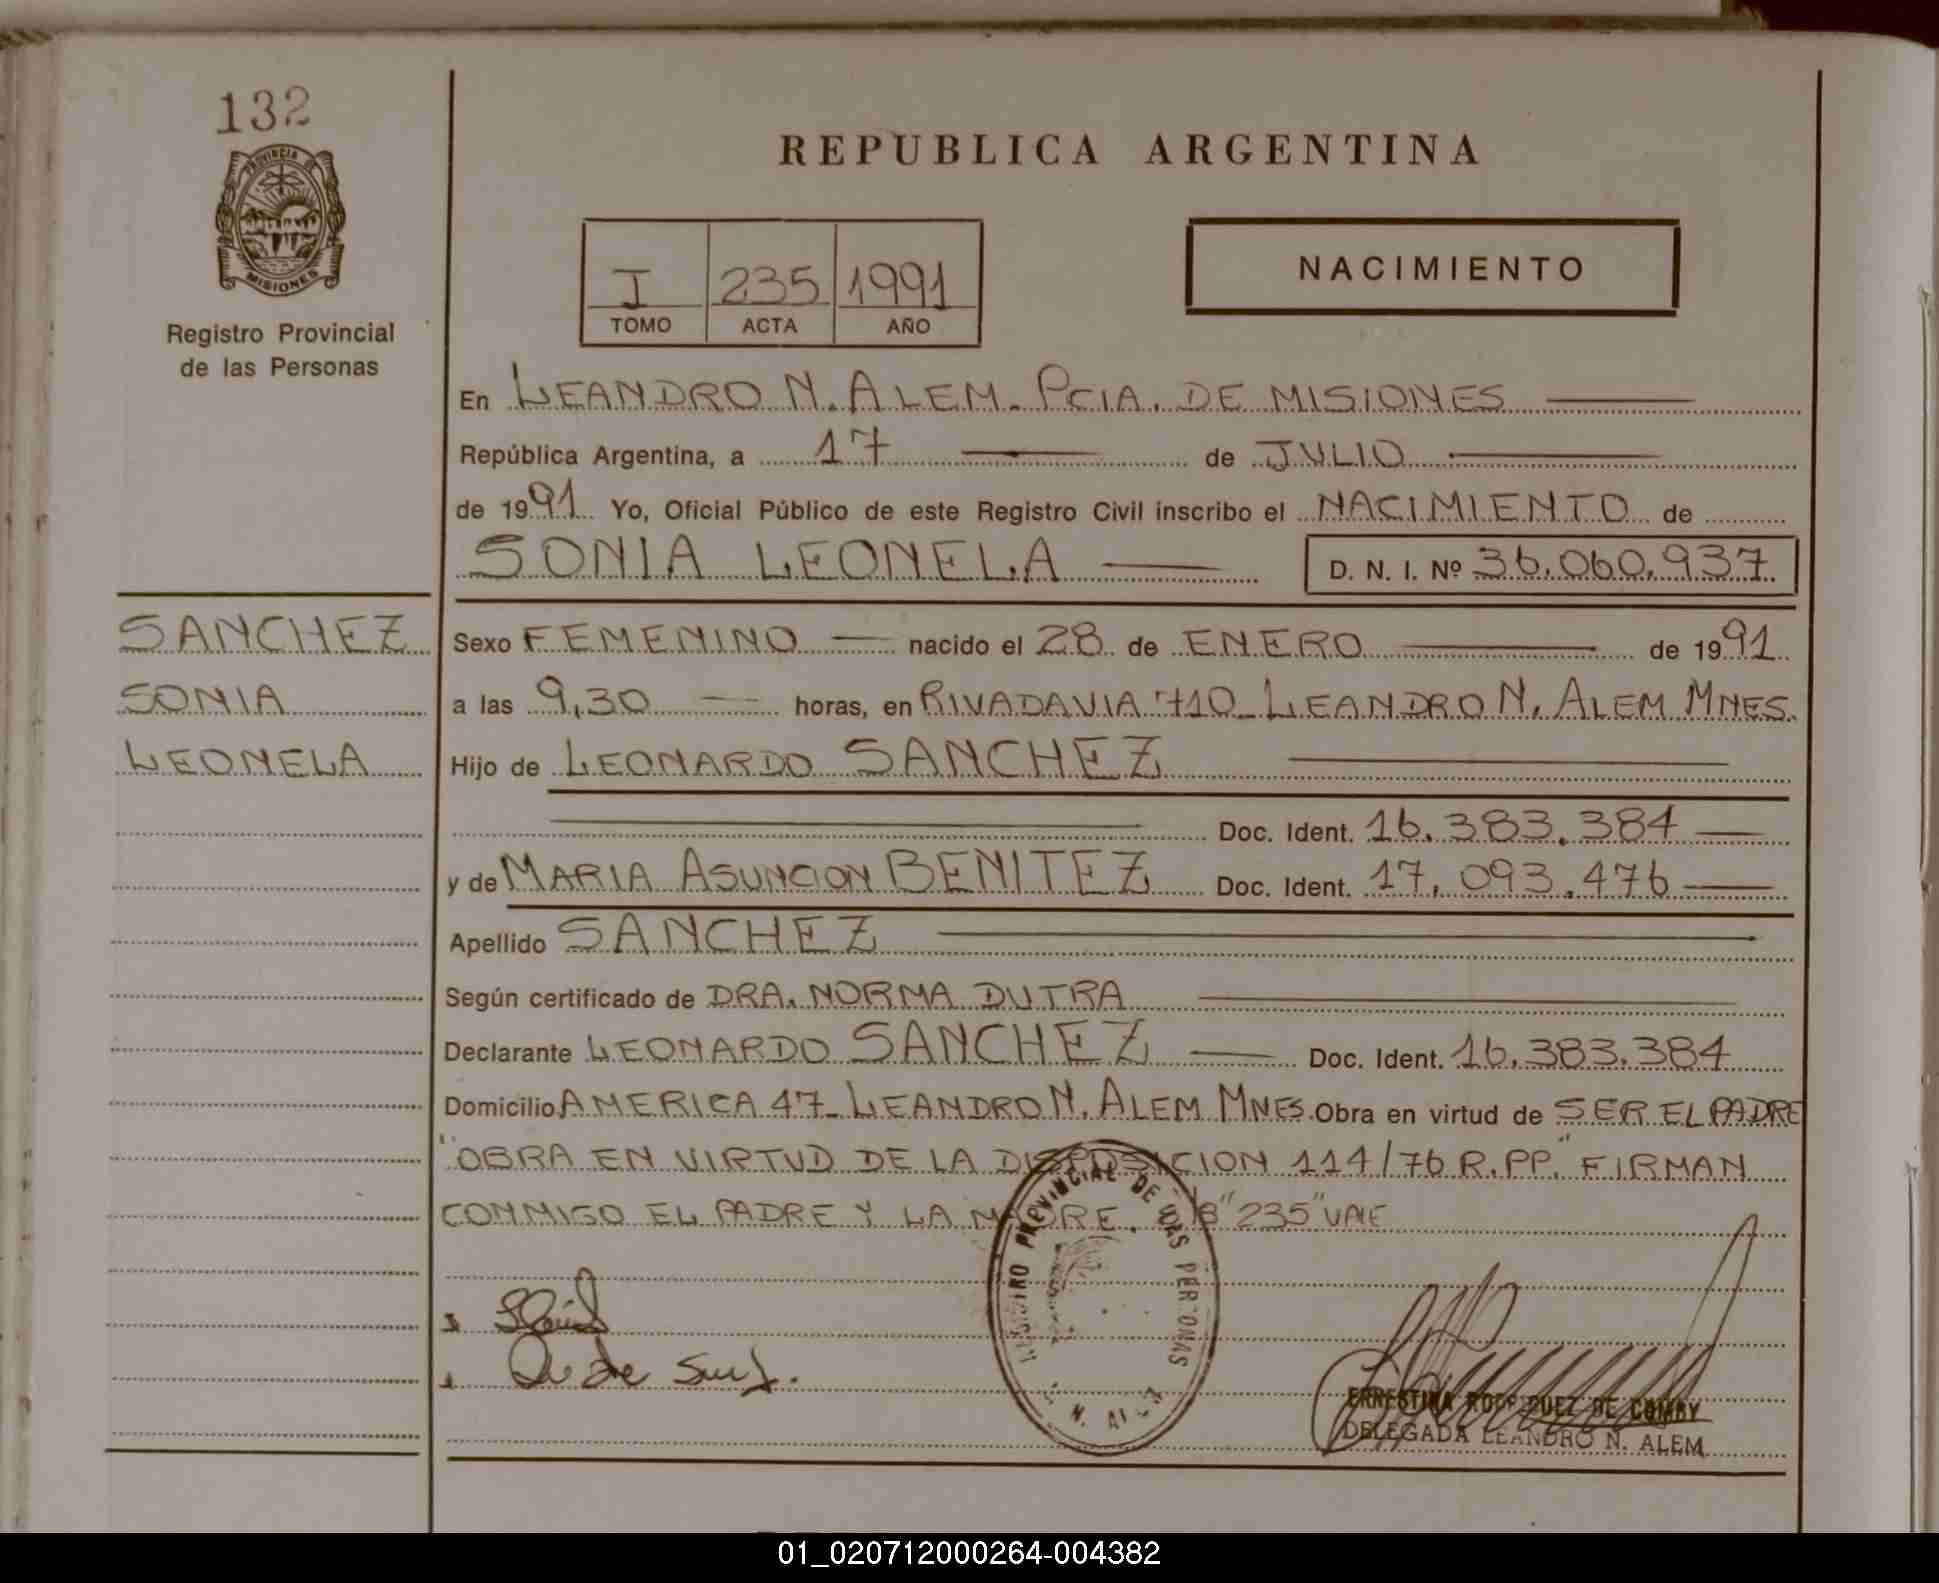 132
PROVINCIA DE
MISIONES
Registro Provincial
de las Personas
SANCHEZ
SONIA
LEONELA
REPUBLICA ARGENTINA
I 235 1991
TOMO ACTA AÑO
NACIMIENTO
En LEANDRO N. ALEM. PCIA. DE MISIONES
República Argentina, a 17 de JULIO
de 1991 Yo, Oficial Público de este Registro Civil inscribo el NACIMIENTO de
SONIA LEONELA D. N. I. Nº 36.060.937
Sexo FEMENINO nacido el 28 de ENERO de 1991
a las 9,30 horas, en RIVADAVIA 710_ LEANDRO N. ALEM MNES.
Hijo de LEONARDO SANCHEZ
Doc. Ident. 16.383.384
y de MARIA ASUNCION BENITEZ Doc. Ident. 17.093.476
Apellido SANCHEZ
Según certificado de DRA. NORMA DUTRA
Declarante LEONARDO SANCHEZ Doc. Ident. 16.383.384
Domicilio AMERICA 47_ LEANDRO N. ALEM MNES. Obra en virtud de SER EL PADRE
"OBRA EN VIRTUD DE LA DISPOSICION 114/76 R.PP." FIRMAN
CONMIGO EL PADRE Y LA MADRE. "235" VALE
REGISTRO PROVINCIAL DE LAS PERSONAS
N. ALEM
ERNESTINA RODRIGUEZ DE
DELEGADA LEANDRO N. ALEM
01_020712000264-004382